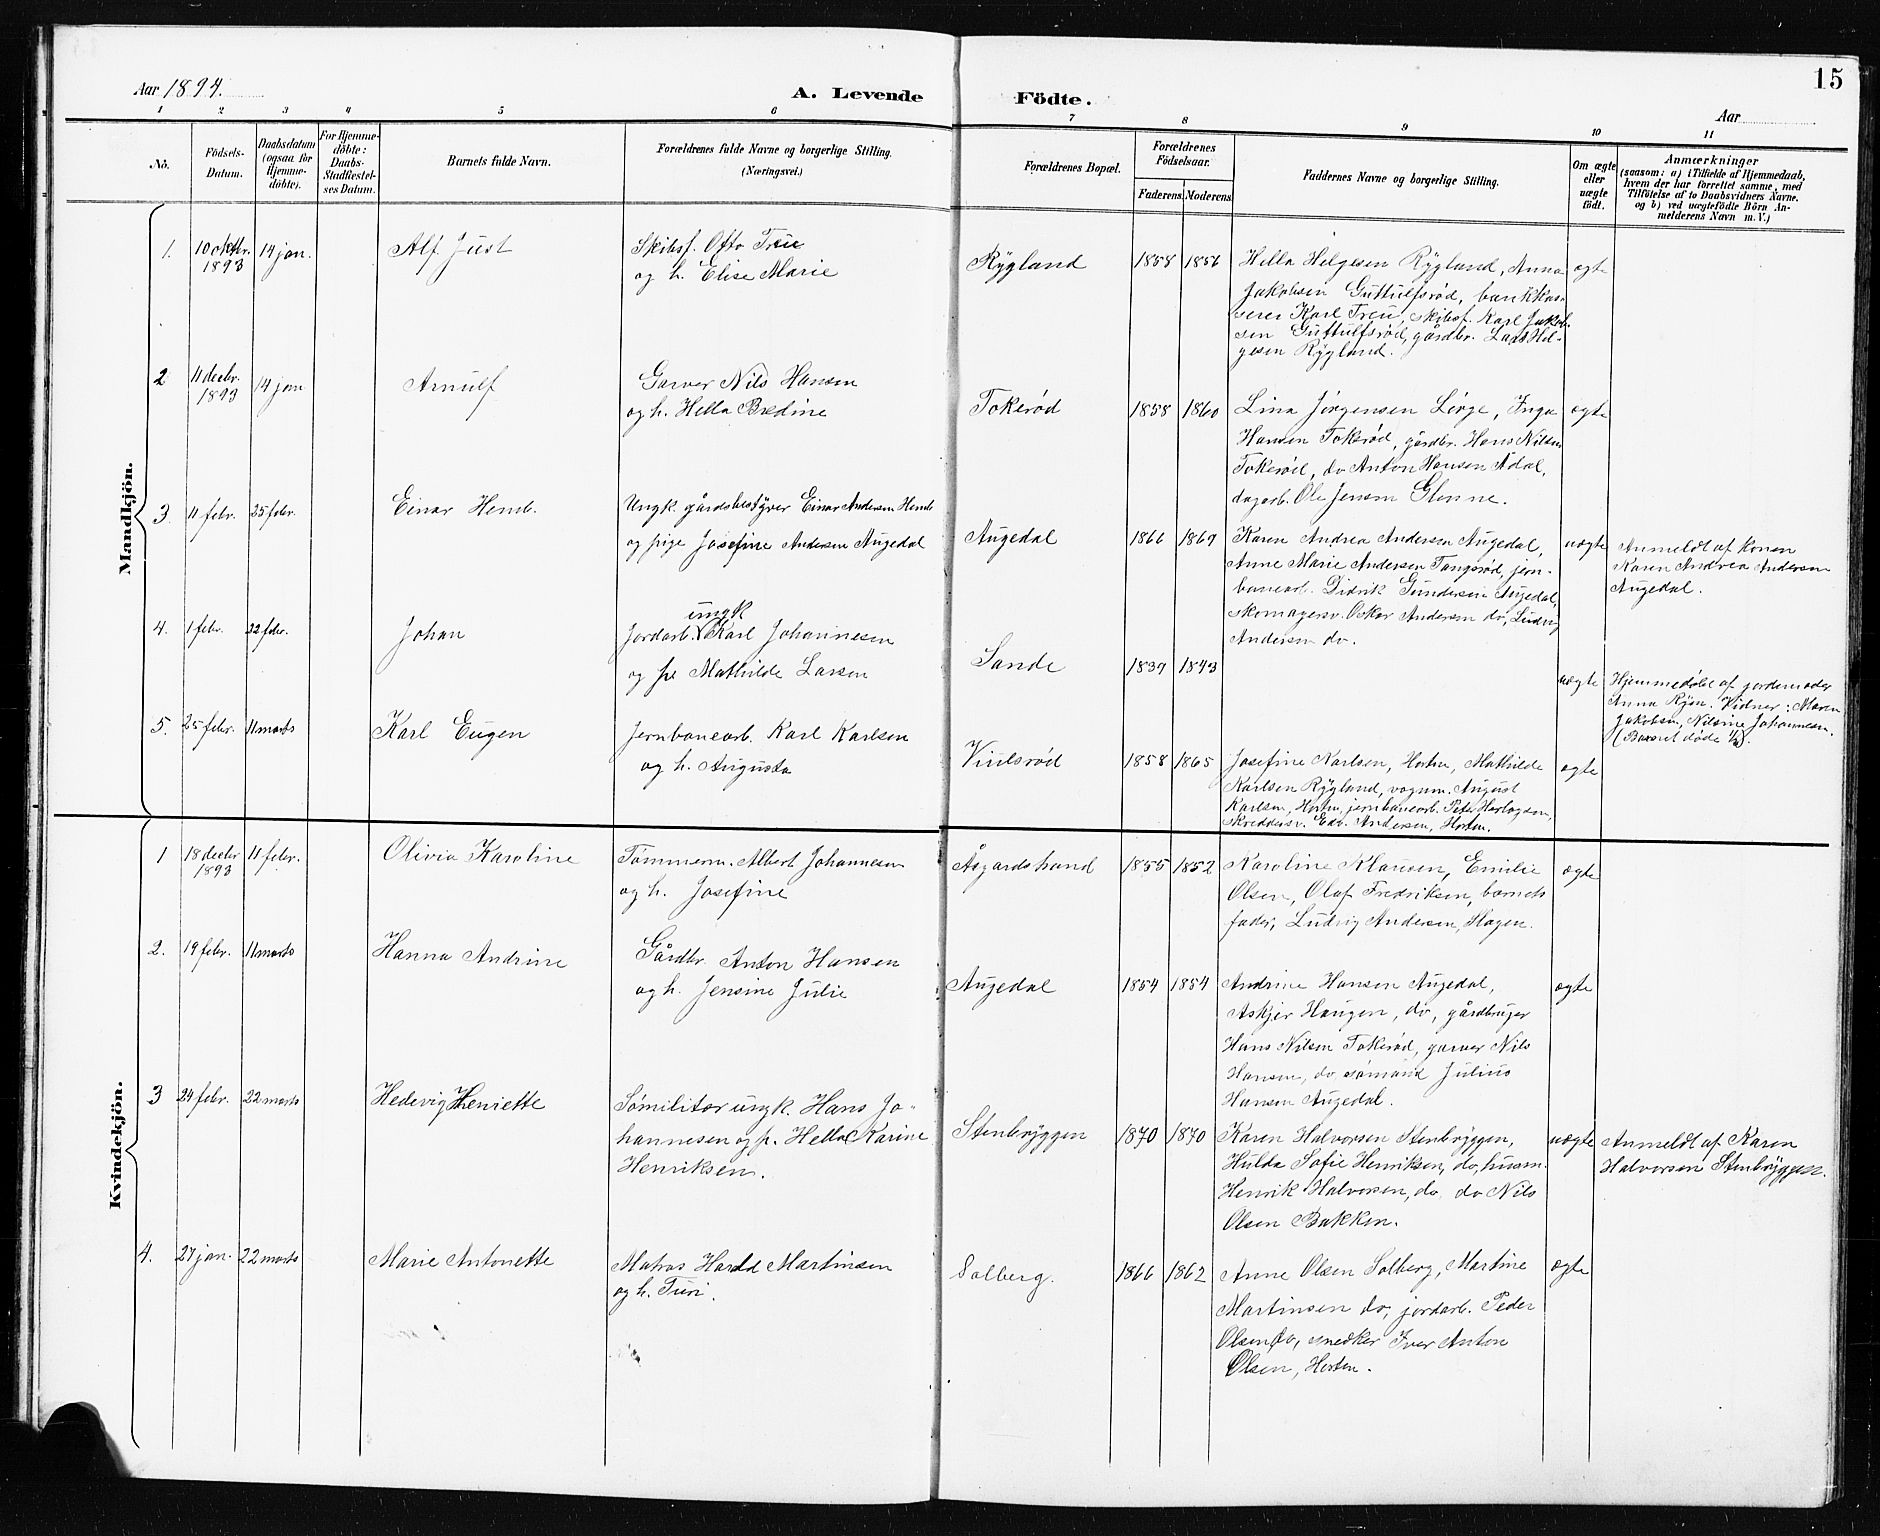 15
Aar 1894.
A. Levende Födte.
Aar
1 2 3 4 5 6 7 8 9 10 11
No.
Födsels-
Datum.
Daabsdatum
(ogsaa for
Hjemme-
döbte).
For Hjemme-
döbte:
Daabs-
Stadfæstel-
ses Datum.
Barnets fulde Navn.
Forældrenes fulde Navne og borgerlige Stilling.
(Næringsvei.)
Forældrenes Bopæl.
Forældrenes
Födselsaar.
Faderens. Moderens.
Faddernes Navne og borgerlige Stilling.
Om ægte
eller
uægte
födt.
Anmærkninger
(saasom: a) i Tilfælde af Hjemmedaab,
hvem der har forrettet samme, med
Tilföielse af to Daabsvidners Navne.
og b) ved uægtefödte Börn An-
melderens Navn m. V.)
Mandkjön.
1. 10 oktbr. 1893 14 jan. Alf Just
Skibsf. Otto Treu
og h. Elise Marie
Rygland 1858 1856
Hella Helgesen Rygland, Anna
Jakobsen Guttulfsrød, bankkas-
serer Karl Treu, skibsf. Karl Jakob-
sen Guttulfsrød, gårdbr. Lars Hel-
gesen Rygland.
ægte
2 11 decbr. 1893 14 jan Arnulf
Garver Nils Hansen
og h. Hella Bredine
Tokerød 1858 1860
Lina Jørgensen Lørge, Inga
Hansen Tokerød, gårdbr. Hans Nilsen
Tokerød, do Anton Hansen Ådal,
dagarb. Ole Jensen Glenne.
ægte
3. 11 febr. 25 febr. Einar Hemb.
Ungk. gårdsbestyrer Einar Andersen Hemb
og pige Josefine Andersen Augedal
Augedal 1866 1867
Karen Andrea Andersen Augedal,
Anne Marie Andersen Tangsrød, jern-
banearb. Didrik Gundersen Augedal,
skomagersv. Oskar Andersen do, Ludvig
Andersen do.
uægte
Anmeldt af konen
Karen Andrea Andersen
Augedal.
4. 1 febr. 22 febr. Johan
ungk
Jordarb. Karl Johannesen
og pe Mathilde Larsen
Sande 1837 1843
uægte
Hjemmedøbt af jordemoder
Anna Rysn. Vidner: Maren
Jakobsen, Nilsine Johannesen.
(Barnet døde).
5. 25 febr. 11 marts Karl Eugen
Jernbanearb. Karl Karlsen
og h. Augusta
Viulsrød 1858 1865
Josefine Karlsen, Horten, Mathilde
Karlsen Rygland, vognm. August
Karlsen, Horten, jernbanearb. Peter Hartogsen,
skreddersv. Edv. Andersen, Horten.
ægte
Kvindekjön.
1 18 decbr 1893 11 febr. Olivia Karoline
Tømmerm. Albert Johannesen
og h. Josefine
Åsgardstrand 1855 1852
Karoline Klausen, Emilie
Olsen, Olaf Fredriksen, barnets
fader, Ludvig Andersen, Hagen.
ægte
2. 19 febr. 11 marts Hanna Andrine
Gårdbr. Anton Hansen
og h. Jensine Julie
Augedal 1854 1854
Andrine Hansen Augedal,
Askjer Haugen, do, gårdbruger
Hans Nilsen Tokerød, garver Nils
Hansen, do sømand Julius
Hansen Augedal.
ægte
3 24 febr. 22 marts Hedevig Henriette
Sømilitær ungk. Hans Jo-
hannesen og p. Hella Karine
Henriksen.
Stenbryggen 1870 1870
Karen Halvorsen Stenbryggen,
Hulda Sofie Henriksen, do, husm.
Henrik Halvorsen, do do Nils
Olsen Bakken.
uægte
Anmeldt af Karen
Halvorsen Stenbryggen.
4. 27 jan. 22 marts Marie Antonette
Matros Harald Martinsen
og h. Turi.
Solberg. 1866 1862
Anne Olsen Solberg, Martine
Martinsen do, jordarb. Peder
Olsen do, snedker Iver Anton
Olsen, Horten.
ægte